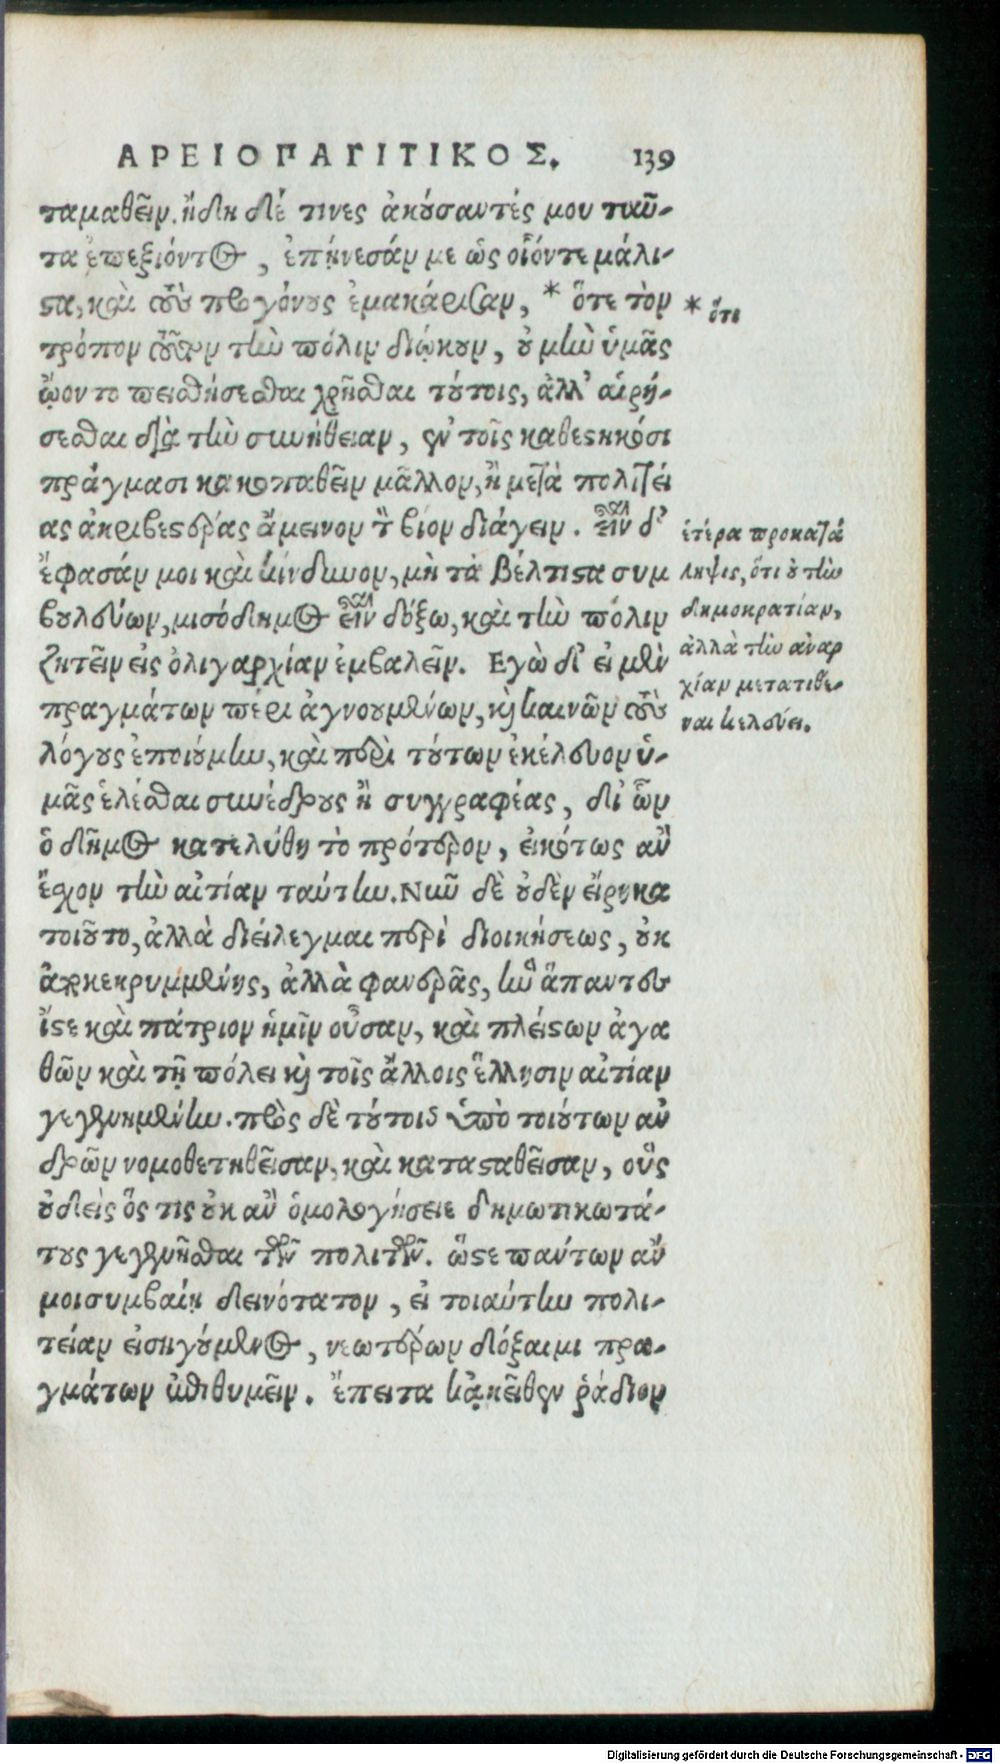 ΑΡΕΙΟΠΑΓΙΤΙΚΟΣ. 139
ταμαθεῖν. ἤδη δέ τινες ἀκούσαντές μου ταῦ-
τα ἐπεξιόντος, ἐπῄνεσάν με ὡς οἷόντε μάλι-
στα, καὶ τοὺς προγόνους ἐμακάρισαν, * ὅτε τὸν
* ὅτι
τρόπον τοῦτον τὴν πόλιν διῴκουν, οὐ μὴν ὑμᾶς
ᾤοντο πεισθήσεσθαι χρῆσθαι τούτοις, ἀλλ' αἱρή-
σεσθαι διὰ τὴν συνήθειαν, ἐν τοῖς καθεστηκόσι
πράγμασι κακοπαθεῖν μᾶλλον, ἢ μετὰ πολιτεί
ας ἀκριβεστέρας ἄμεινον τὸν βίον διάγειν. εἶναι δ'
ἔφασάν μοι καὶ κίνδυνον, μὴ τὰ βέλτιστα συμ
βουλεύων, μισόδημος εἶναι δόξω, καὶ τὴν πόλιν
ζητεῖν εἰς ὀλιγαρχίαν ἐμβαλεῖν. Εγὼ δ' εἰ μὲν
πραγμάτων πέρι ἀγνοουμένων, καὶ καινῶν τοὺς
λόγους ἐποιούμην, καὶ περὶ τούτων ἐκέλευον ὑ-
μᾶς ἑλέσθαι συνέδρους ἢ συγγραφέας, δι' ὧν
ὁ δῆμος κατελύθη τὸ πρότερον, εἰκότως ἂν
ἔχον τὴν αἰτίαν ταύτην. Νῦν δὲ οὐδὲν εἴρηκα
τοιοῦτο, ἀλλὰ διείλεγμαι περὶ διοικήσεως, οὐκ
ἀποκεκρυμμένης, ἀλλὰ φανερᾶς, ἣν ἅπαντες
ἴστε καὶ πάτριον ἡμῖν οὖσαν, καὶ πλείστων ἀγα
θῶν καὶ τῇ πόλει καὶ τοῖς ἄλλοις ἕλλησιν αἰτίαν
γεγενημένην. πρὸς δὲ τούτοις ὑπὸ τοιούτων ἀν
δρῶν νομοθετηθεῖσαν, καὶ κατασταθεῖσαν, οὓς
οὐδεὶς ὅς τις οὐκ ἂν ὁμολογήσειε δημωτικωτά-
τους γεγενῆσθαι τῶν πολιτῶν. ὥστε πάντων ἂν
μοι συμβαίη δεινότατον, εἰ τοιαύτην πολι-
τείαν εἰσηγούμενος, νεωτέρων δόξαιμι πρα-
γμάτων ἐπιθυμεῖν. Ἔπειτα κἀκεῖθεν ῥάδιον
ἑτέρα προκατά
ληψις, ὅτι οὐ τὴν
δημοκρατίαν,
ἀλλὰ τὴν ἀναρ
χίαν μετατιθέ-
ναι κελεύει.
Digitalisierung gefördert durch die Deutsche Forschungsgemeinschaft - DFG